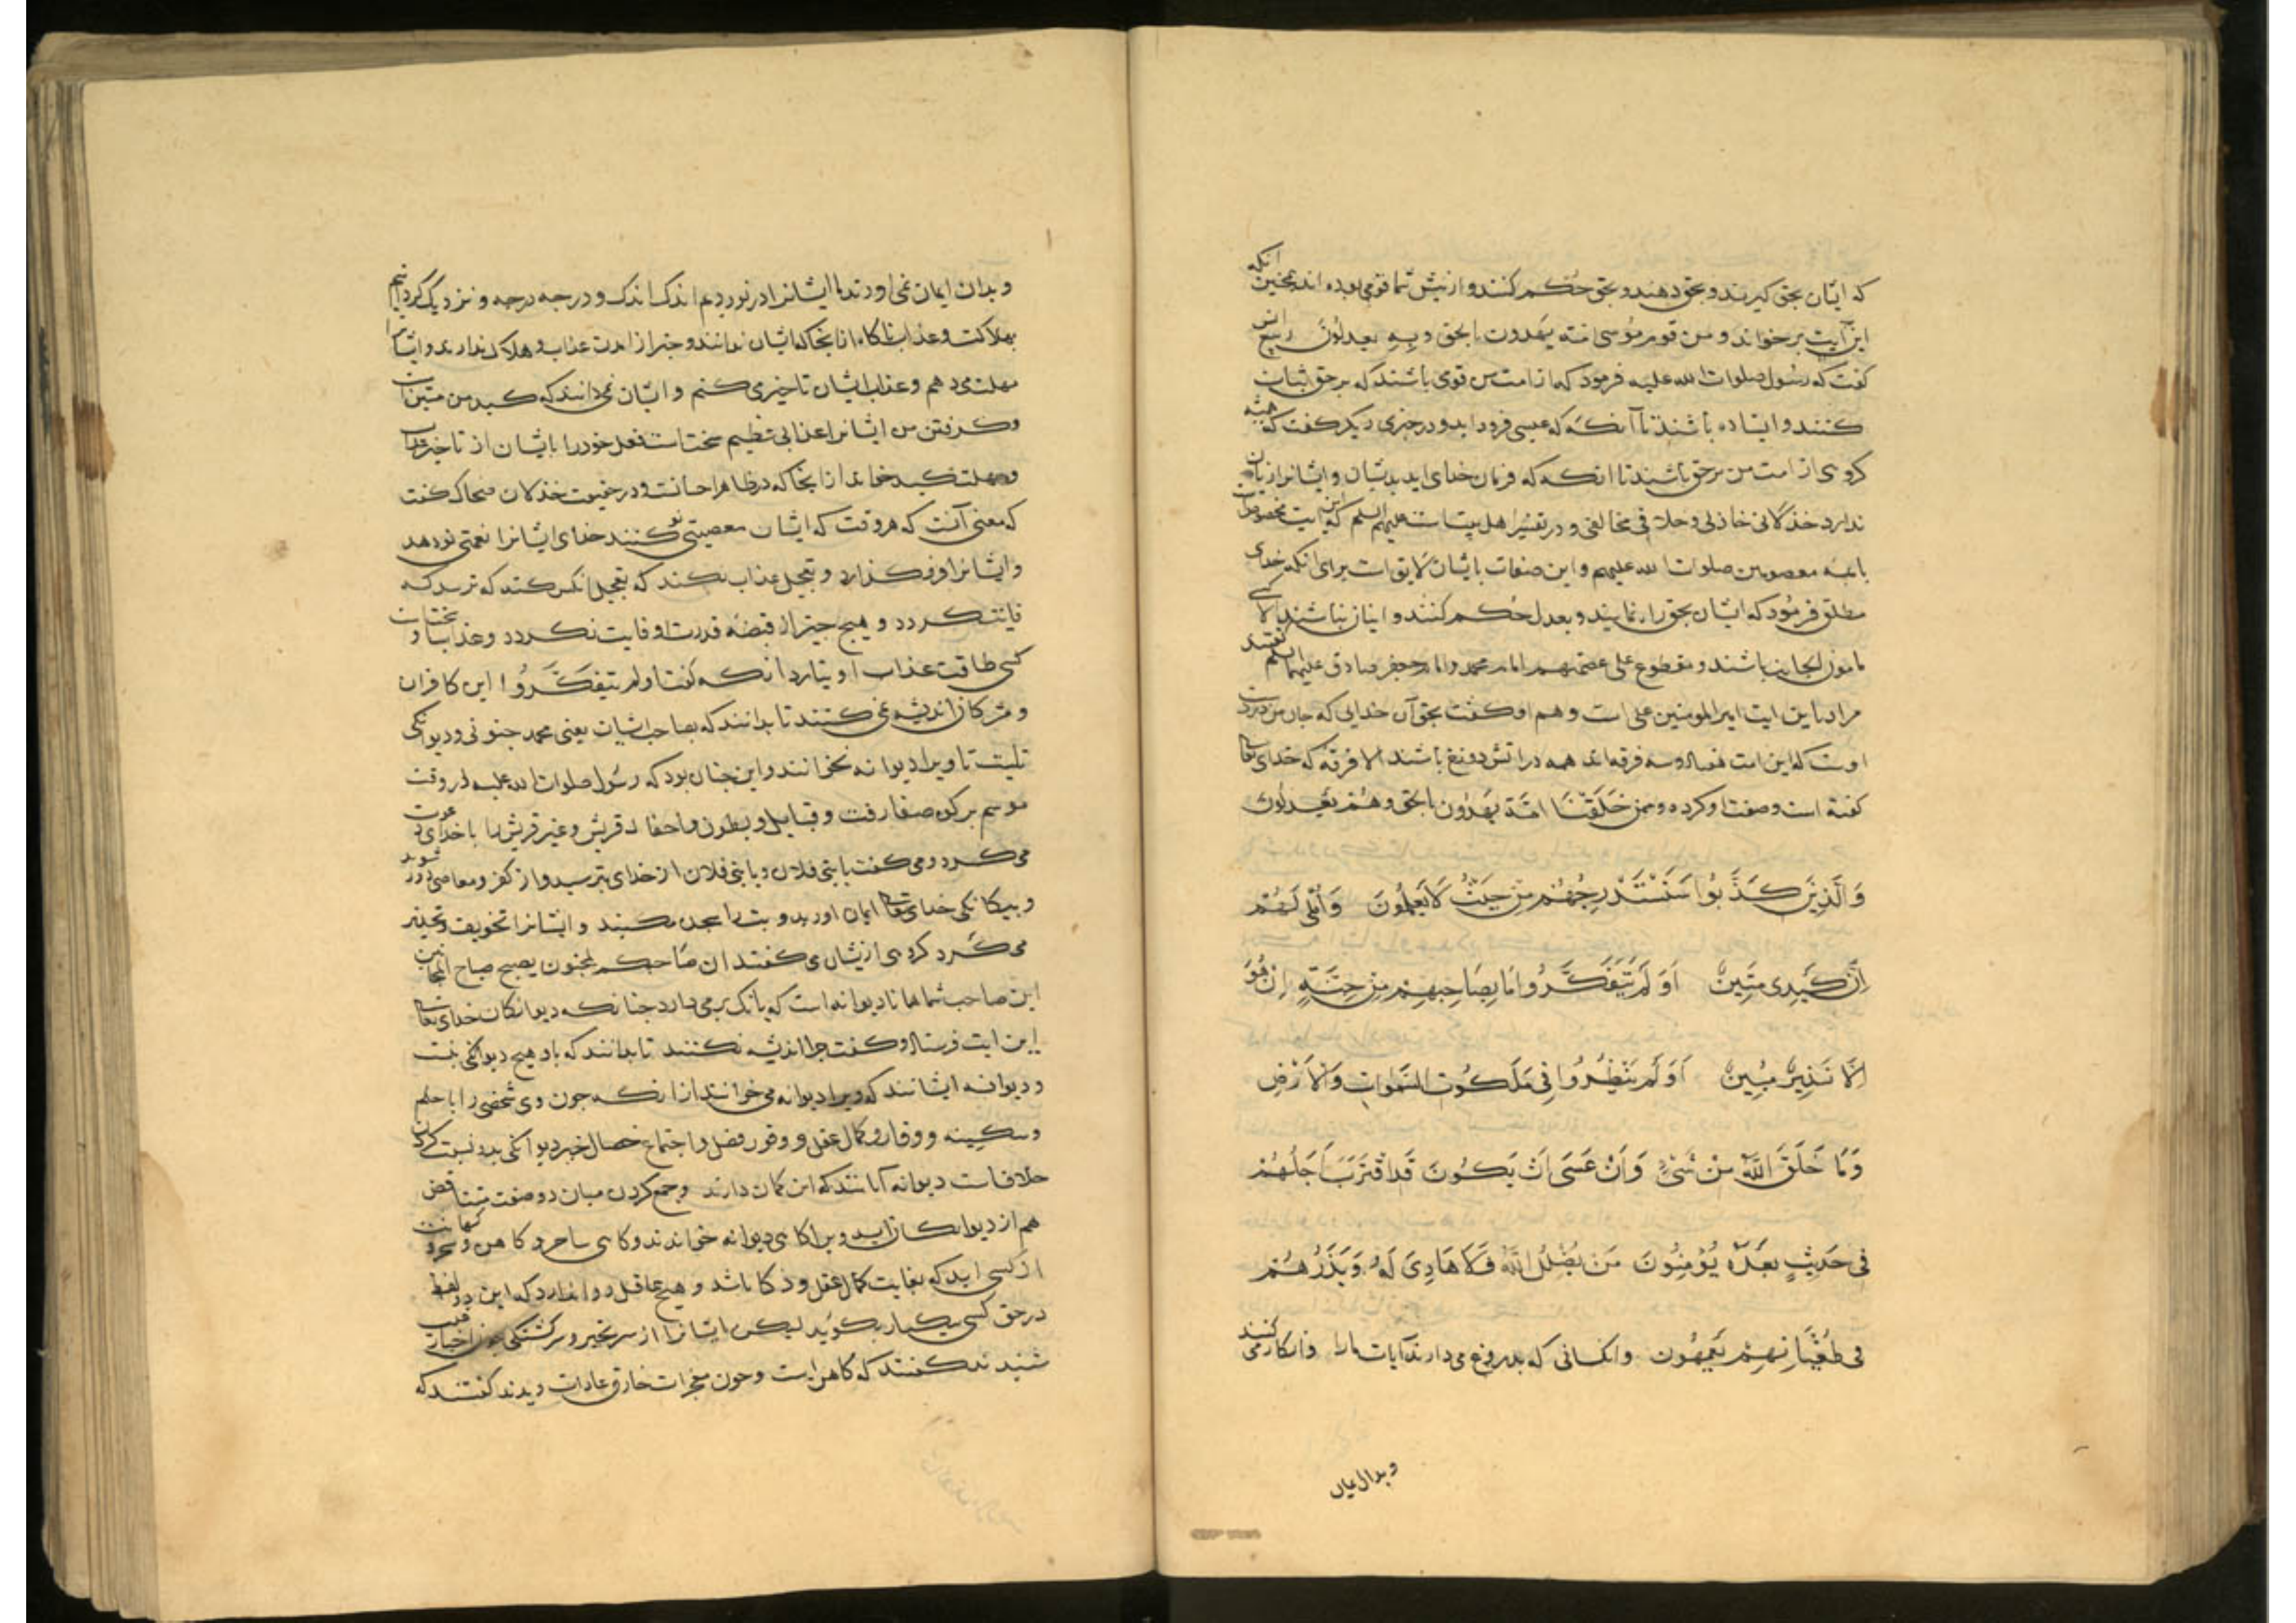 که ایشان بحق کیرند و بحق دهند و بحق حکم کنند و از پیش شما قومی بوده اند همچنین انکه
این آیت بر خواند و من قوم موسی امة یهدون بالحق و به یعدلون ربیع انس
کفت که رسول صلوات الله علیه فرمود که از امت من قومی باشند که بر حق ثبات
کنند و ایستاده باشند تا آنکه که عیسی فرود اید و در خبری دیکر کفت که همیشه
کروهی از امت من بر حق باشند تا انکه که فرمان خدای اید بدیشان و ایشانرا زیان
ندارد خذلان خاذلی و خلاف مخالفی و در تفسیر اهل بیت است علیهم السلم که این ایت مخصوص است
بائمه معصومین صلوات الله علیهم و این صفات بایشان لایق است برای انکه خدای
مطلق فرمود که ایشان بحق راه نمایند و بعدل حکم کنند و اینان نباشند الا کسی
مامون الجانب باشند و مقطوع علی عصمتهم امام محمد و امام جعفر صادق علیهما السلم کفتند
مراد باین ایت امیر المومنین علی است و هم او کفت بحق آن خدایی که جان من بدست
اوست که این امت هفتاد و سه فرقه اند همه در اتش دوزخ باشند الا فرقه که خدای تعالی
کفته است و صفت او کرده و ممن خلقنا امة یهدون بالحق و هم یعدلون
وَالَّذِينَ كَذَّبُوا سَنَسْتَدْرِجُهُمْ مِنْ حَيْثُ لَا يَعْلَمُونَ وَأُمْلِي لَهُمْ
اِنَّ كَيْدِي مَتِينٌ اَوَلَمْ يَتَفَكَّرُوا مَا بِصَاحِبِهِمْ مِنْ جِنَّةٍ اِنْ هُوَ
اِلَّا نَذِيرٌ مُبِينٌ اَوَلَمْ يَنْظُرُوا فِي مَلَكُوتِ السَّمَوَاتِ وَالْاَرْضِ
وَمَا خَلَقَ اللَّهُ مِنْ شَيْءٍ وَاَنْ عَسَى اَنْ يَكُونَ قَدِ اقْتَرَبَ اَجَلُهُمْ
فِي حَدِيثٍ بَعْدَهُ يُؤْمِنُونَ مَنْ يُضْلِلِ اللَّهُ فَلَا هَادِيَ لَهُ وَيَذَرُهُمْ
فِي طُغْيَانِهِمْ يَعْمَهُونَ وانکسانی که بدروغ می دارند آیات ما را و انکار می کنند
و بدان ایمان نمی اورند ما ایشانرا در نوردیم اندک اندک و درجه درجه و نزدیک کردانیم
بهلاکت و عذاب ناکاه از انجا که ایشان ندانند و خبر از امدن عذاب و هلاک ندارند و ایشانرا
مهلت می دهم و عذاب ایشان تاخیر می کنم و ایشان نمی دانند که کید من متین است
و کرفتن من ایشانرا عذابی عظیم سخت است فعل خود را بایشان از تاخیر عذاب
و مهلت کید خواند از انجا که در ظاهر احسانست و در حقیقت خذلان ضحاک کفت
که معنی آنست که هر وقت که ایشان معصیتی نو کنند خدای ایشانرا نعمتی نو دهد
و ایشانرا فرو کذارد و تعجیل عذاب نکند که تعجیل انکس کند که ترسد که
فایت کردد و هیچ چیز از قبضه قدرت او فایت نکردد و عذاب او سخت است
کسی طاقت عذاب او نیارد انکه کفت اولم یتفکروا این کافران
و مشرکان اندیشه نمی کنند تا بدانند که بصاحب ایشان یعنی محمد جنونی و دیوانکی
نیست تا ویرا دیوانه نخوانند و این چنان بود که رسول صلوات الله علیه در وقت
موسم بر کوه صفا رفت و قبایل و بطون و احفاد قریش و غیر قریش را با خدای دعوت
می کرد و می کفت یا بنی فلان و یا بنی فلان از خدای بترسید و از کفر و معاصی دور شوید
و بیکانکی خدای تعالی ایمان اورید و بت را سجده مکنید و ایشانرا تخویف و تحذیر
می کرد کروهی ازیشان کفتند ان صاحبکم لمجنون یصیح صیاح المجانین
این صاحب شما همانا دیوانه است که بانک بر می دارد چنانکه دیوانکان خدای تعالی
این ایت فرستاد و کفت چرا اندیشه نکنند تا بدانند که باو هیچ دیوانکی نیست
و دیوانه ایشانند که ویرا دیوانه می خوانند از انکه چون وی شخصی را با حلم
و سکینه و وقار و کمال عقل و وفور فضل و اجتماع خصال خیر دیوانکی بدو نسبت کردن
خلافست دیوانه آنانند که این کمان دارند و جمع کردن میان دو صفت متناقض
هم از دیوانکان اید ویرا کاهی دیوانه خواندند و کاهی ساحر و کاهن و سحر و کهانت
از کسی اید که بغایت کمال عقل و ذکا باشد و هیچ عاقل روا ندارد که این دو لفظ
در حق کسی بیکبار بکوید لیکن ایشانرا از سر تحیر و سرکشتکی چون اخبار غیب
شنیدند کفتند که کاهن است و چون معجزات خارق عادات دیدند کفتند که